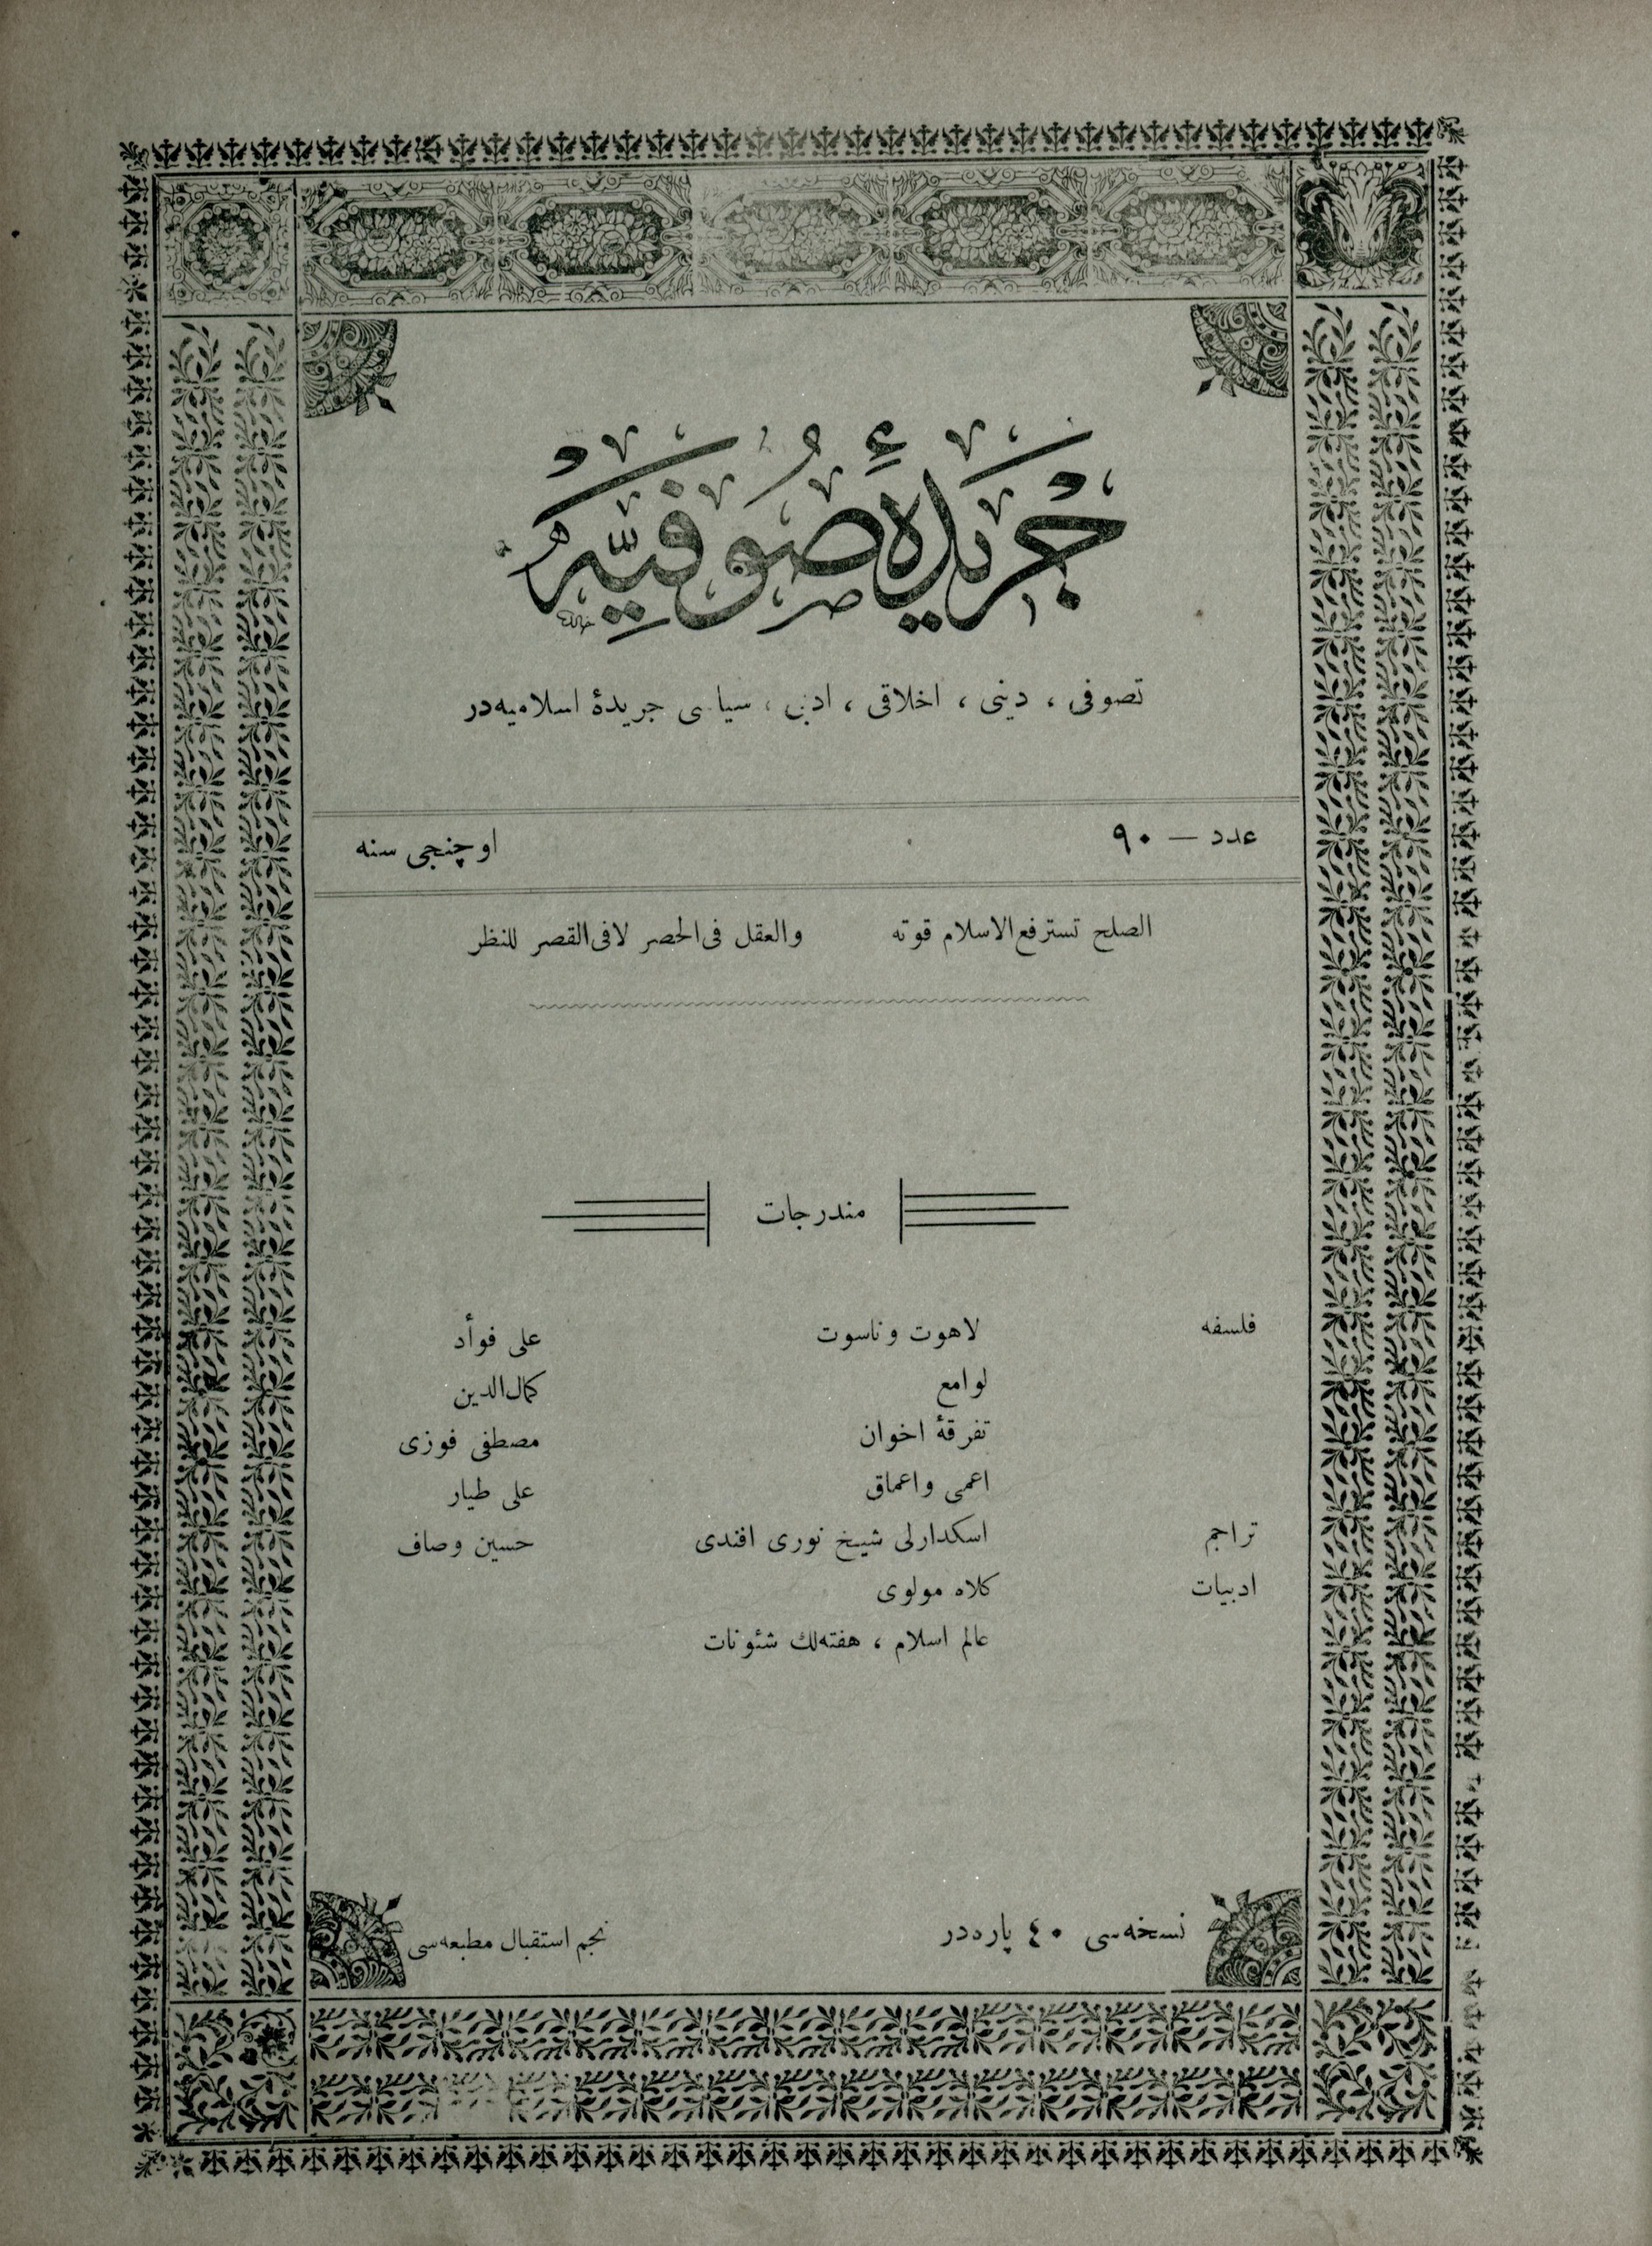 جريدۀ صوفيه
تصوفى ، دينى ، اخلاقى ، ادبى ، سياسى جريدۀ اسلاميه‌در
عدد — ٩٠ اوچنجى سنه
الصلح تسترفع الاسلام قوته والعقل فى الحصر لا فى القصر للنظر
مندرجات
فلسفه لاهوت وناسوت على فوأد
لوامع كمال‌الدين
تفرقۀ اخوان مصطفى فوزى
اعمى واعماق على طيار
تراجم اسكدارلى شيخ نورى افندى حسين وصاف
ادبيات كلاه مولوى
عالم اسلام ، هفته‌لك شئونات
نسخه‌سى ٤٠ پاره‌در نجم استقبال مطبعه‌سى